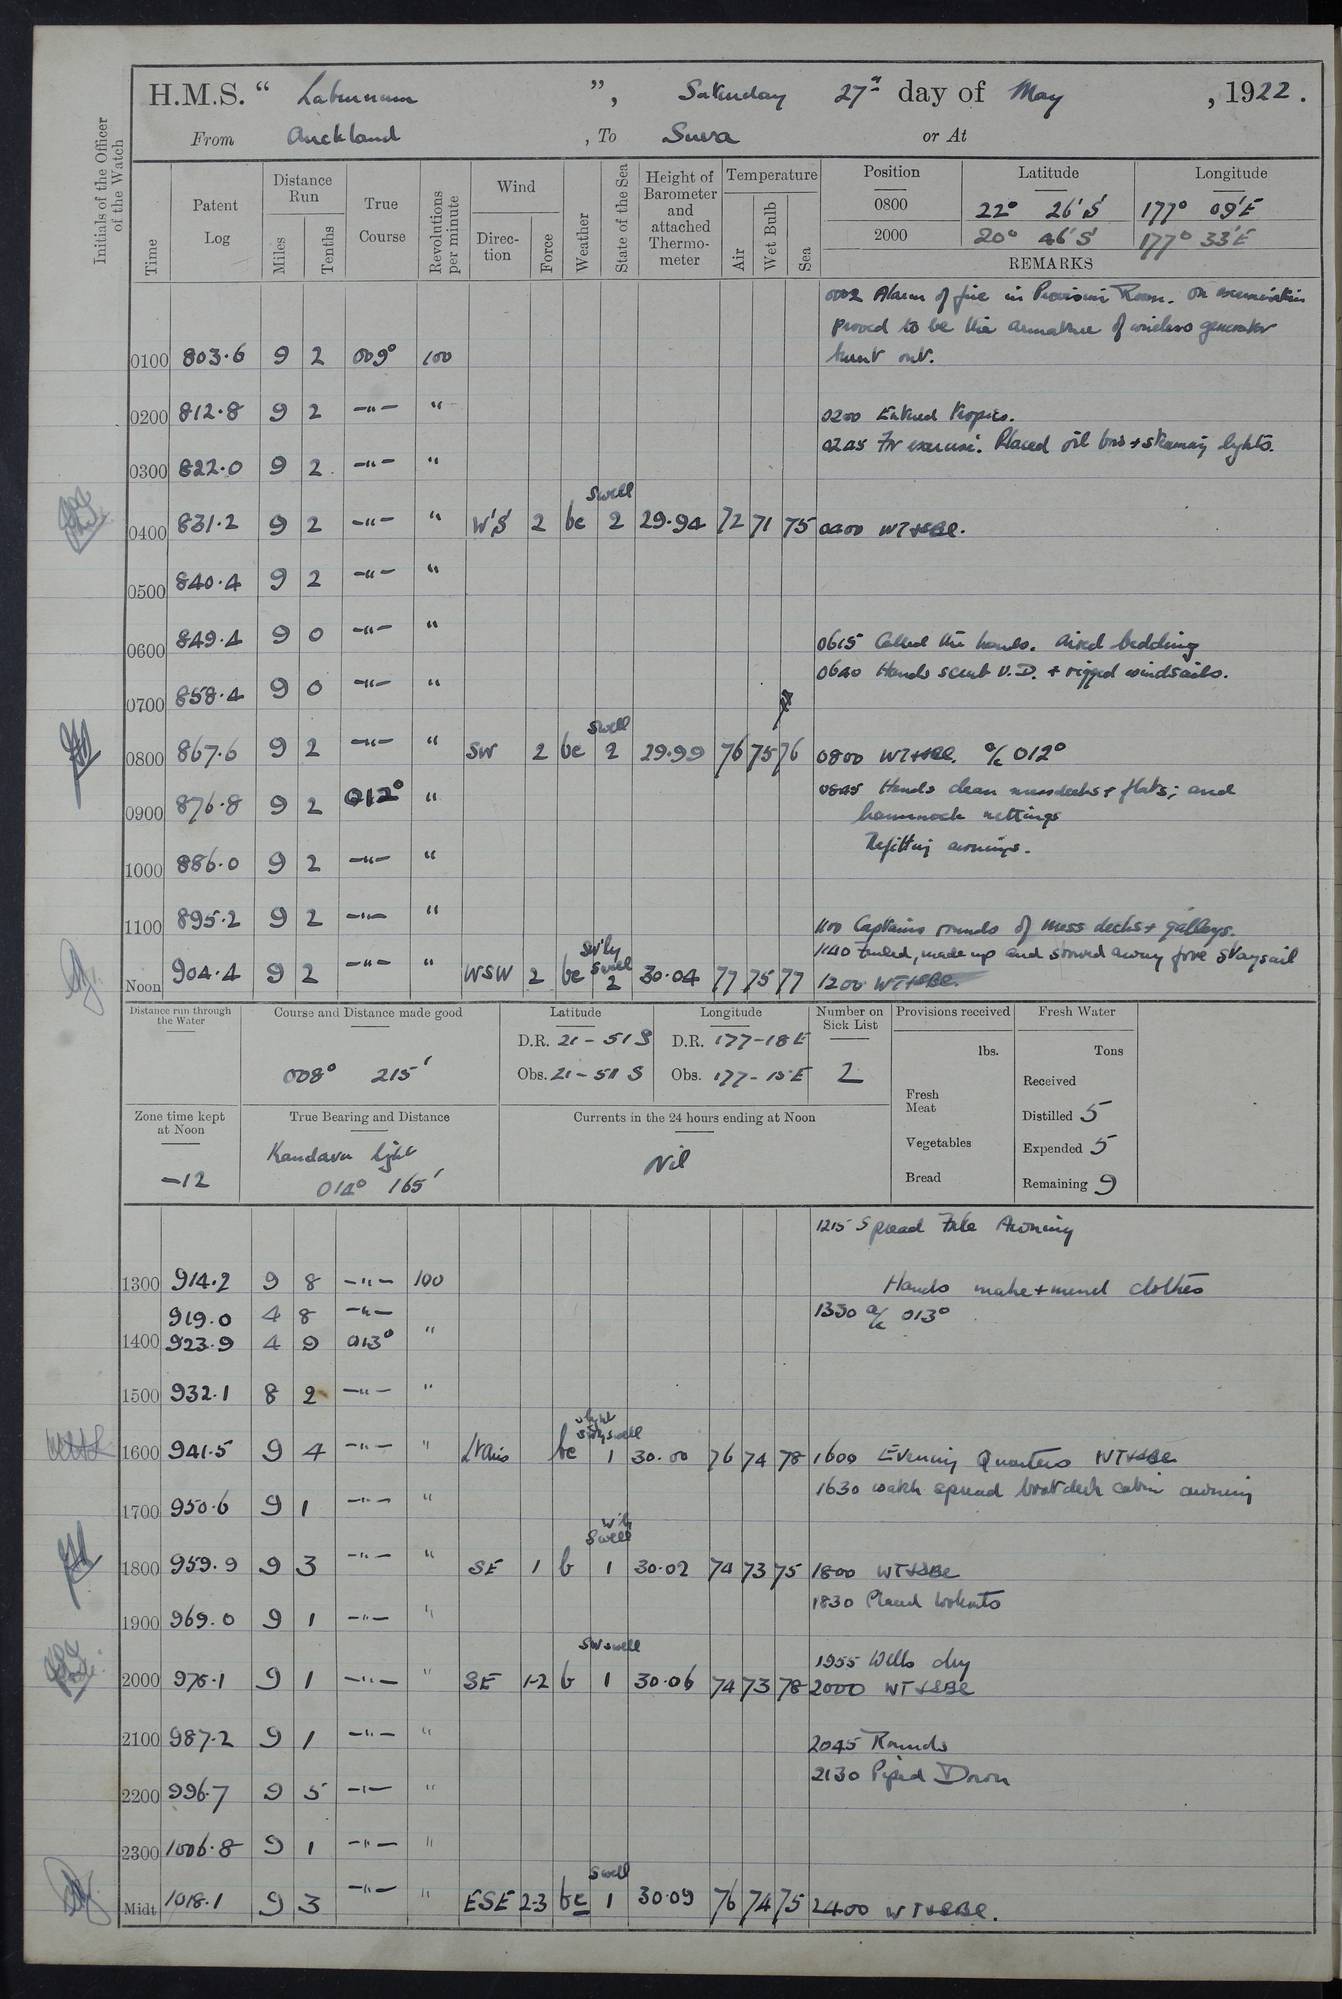 H.M.S. “ Laburnum ”, Saturday 27th day of May , 1922.
From Auckland , To Suva or At
Initials of the Officer of the Watch
Time
Patent Log
Distance Run
Miles
Tenths
True Course
Revolutions per minute
Wind
Direction
Force
Weather
State of the Sea
Height of Barometer and attached Thermometer
Temperature
Air
Wet Bulb
Sea
Position Latitude Longitude
0800 22° 26' S 177° 09' E
2000 20° 46' S 177° 33' E
REMARKS
0002 Alarm of fire in Provision Room. On examination
proved to be the armature of wireless generator
0100 803.6 9 2 009° 100 burnt out.
0200 812.8 9 2 —"— " 0200 Entered tropics.
0245 For exercise. Placed oil bow & steaming lights.
0300 822.0 9 2 —"— "
Swell
0400 831.2 9 2 —"— " W'S 2 bc 2 29.94 72 71 75 0400 WT&SBl.
0500 840.4 9 2 —"— "
0600 849.4 9 0 —"— " 0615 Called the hands. Aired bedding
0640 Hands scrub U.D. & rigged windsails.
0700 858.4 9 0 —"— "
Swell
0800 867.6 9 2 —"— " SW 2 bc 2 29.99 76 75 76 0800 WT&SBl. a/c 012°
0845 Hands clean messdecks & flats; and
0900 876.8 9 2 012° " hammock nettings
Refitting awnings.
1000 886.0 9 2 —"— "
1100 895.2 9 2 —"— " 1100 Captains rounds of mess decks & galleys.
Sw'ly swell
1140 Furled, made up and stowed away fore staysail
Noon 904.4 9 2 —"— " WSW 2 bc 2 30.04 77 75 77 1200 WT&SBl.
Distance run through the Water
Course and Distance made good
008° 215'
Latitude
D.R. 21 - 51 S
Obs. 21 - 51 S
Longitude
D.R. 177 - 18 E
Obs. 177 - 15 E
Number on Sick List
2
Provisions received
lbs.
Fresh Meat
Vegetables
Bread
Fresh Water
Tons
Received
Distilled 5
Expended 5
Remaining 9
Zone time kept at Noon
-12
True Bearing and Distance
Kandavu light
014° 165'
Currents in the 24 hours ending at Noon
Nil
1215 Spread Awning
1300 914.2 9 8 —"— 100 Hands make & mend clothes
919.0 4 8 —"— 1330 a/c 013°
1400 923.9 4 9 013° "
1500 932.1 8 2 —"— "
slight Sw'ly swell
1600 941.5 9 4 —"— " bc 1 30.00 76 74 78 1600 Evening Quarters WT&SBl
1630 Watch spread boatdeck cabin awning
1700 950.6 9 1 —"— "
W'ly Swell
1800 959.9 9 3 —"— " SE 1 b 1 30.02 74 73 75 1800 WT&SBl
1830 Placed lookouts
1900 969.0 9 1 —"— "
SW swell
1955 Wells dry
2000 978.1 9 1 —"— " SE 1-2 b 1 30.06 74 73 78 2000 WT&SBl
2100 987.2 9 1 —"— " 2045 Rounds
2130 Piped Down
2200 996.7 9 5 —"— "
2300 1006.8 9 1 —"— "
Swell
Midt 1018.1 9 3 —"— " ESE 2-3 bc 1 30.09 76 74 75 2400 WT&SBl.